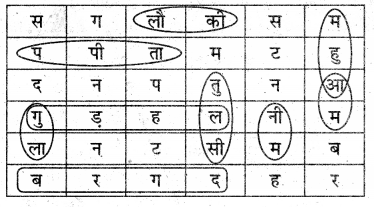 स ग लौ की स म
प पी ता म ट हु
द न प तु न आ
गु ड़ ह ल नी म
ला न ट सी म ब
ब र ग द ह र